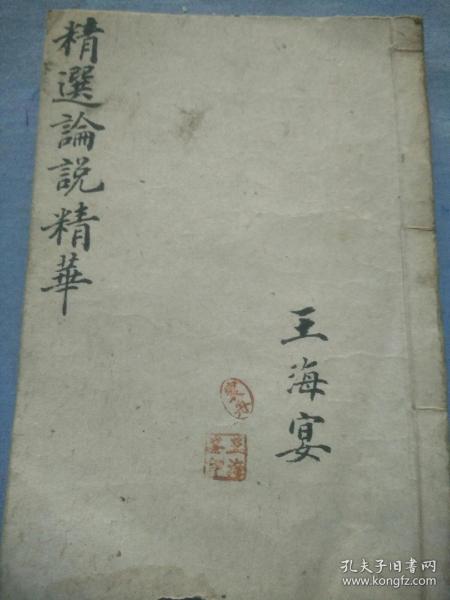 精選論説精華
王海宴
孔夫子旧书网
www.kongfz.com